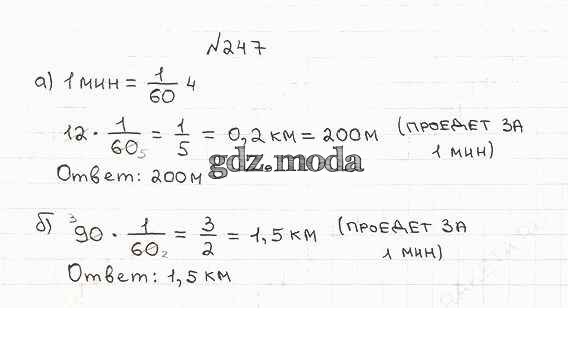 №247
а) 1 мин = 1/60 ч
12 · 1/60₅ = 1/5 = 0,2 км = 200м (ПРОЕДЕТ ЗА 1 МИН)
gdz.moda
Ответ: 200м
б) ³90 · 1/60₂ = 3/2 = 1,5 км (ПРОЕДЕТ ЗА 1 МИН)
Ответ: 1,5 км